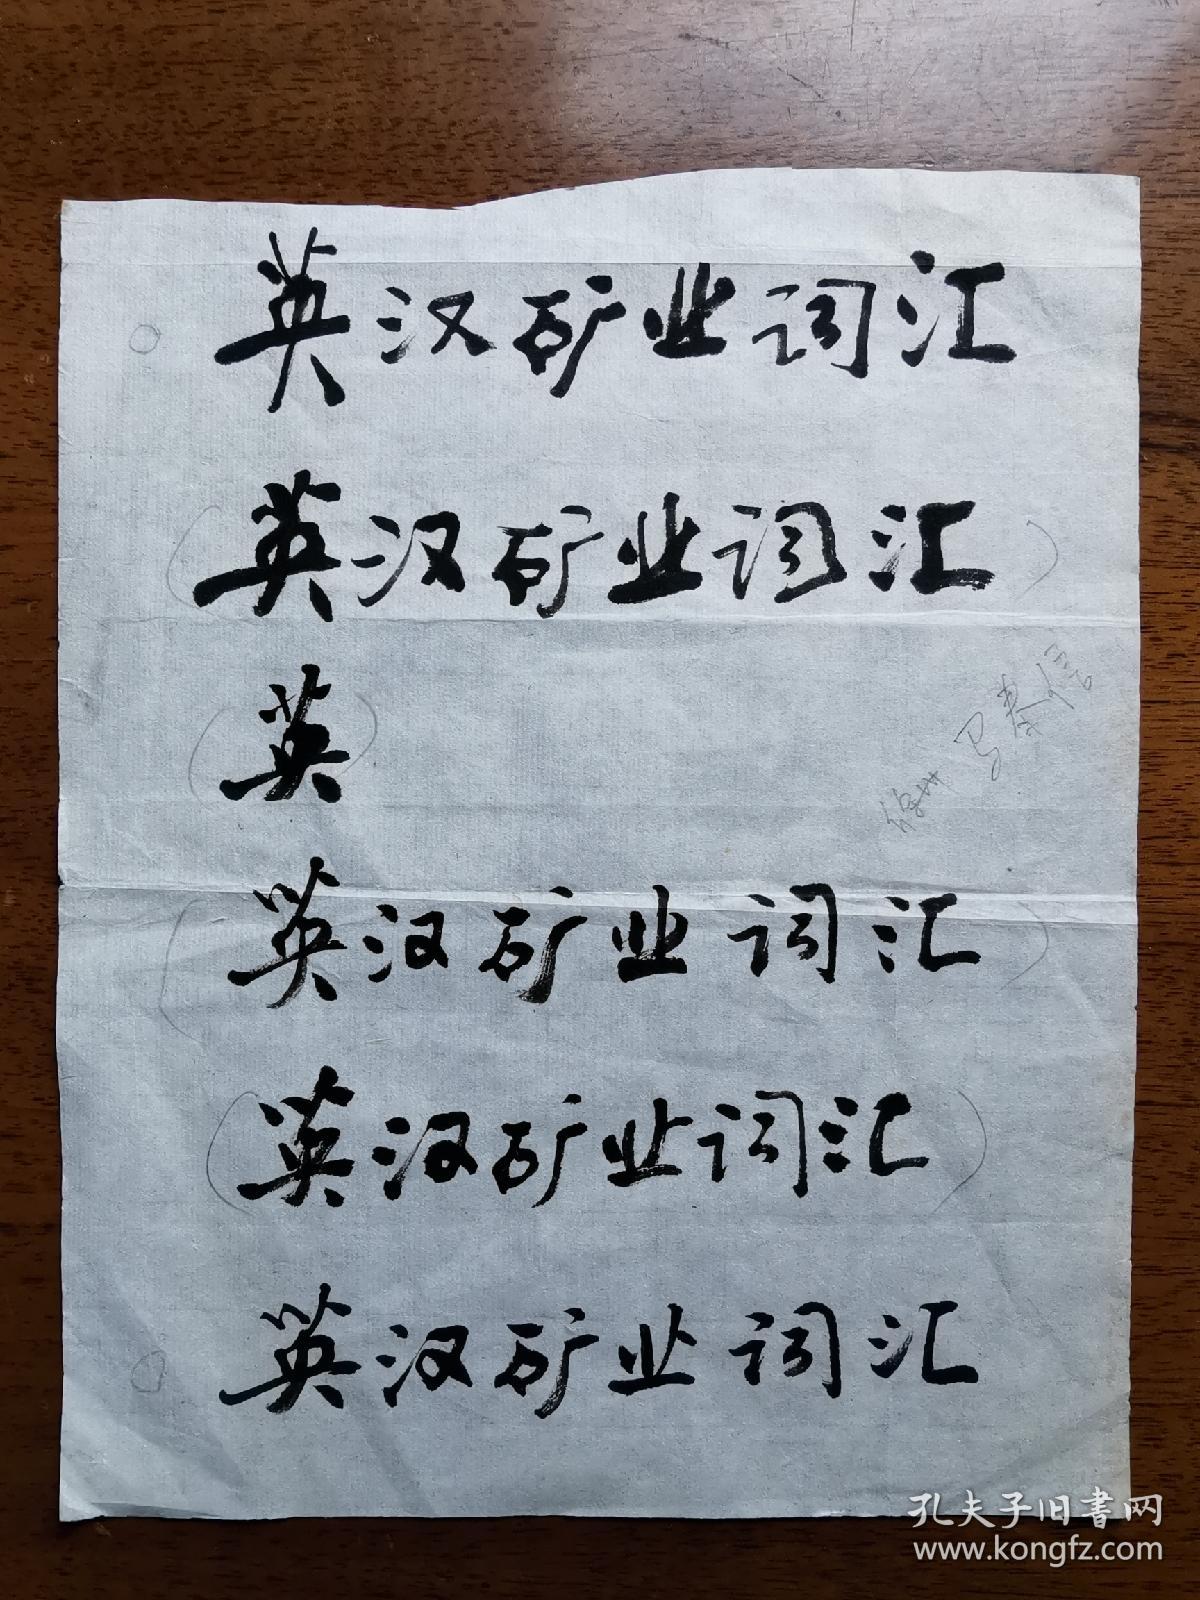 英汉矿业词汇
英汉矿业词汇
英
徐州 马奉信
英汉矿业词汇
英汉矿业词汇
英汉矿业词汇
孔夫子旧書网
www.kongfz.com